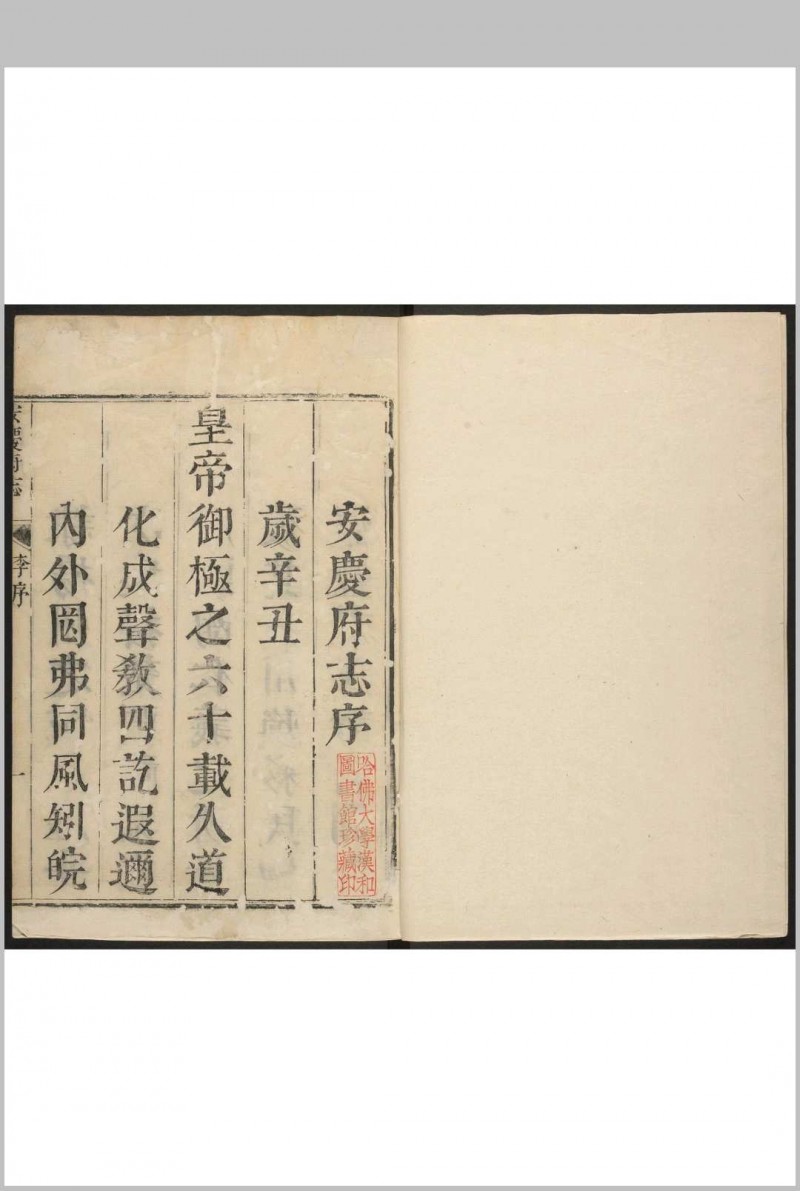 安慶府志序
歲辛丑
皇帝御極之六十載久道
化成聲敎四訖遐邇
內外罔弗同風矧皖
安慶府志
李序
一
哈佛大學漢和
圖書館珍藏印